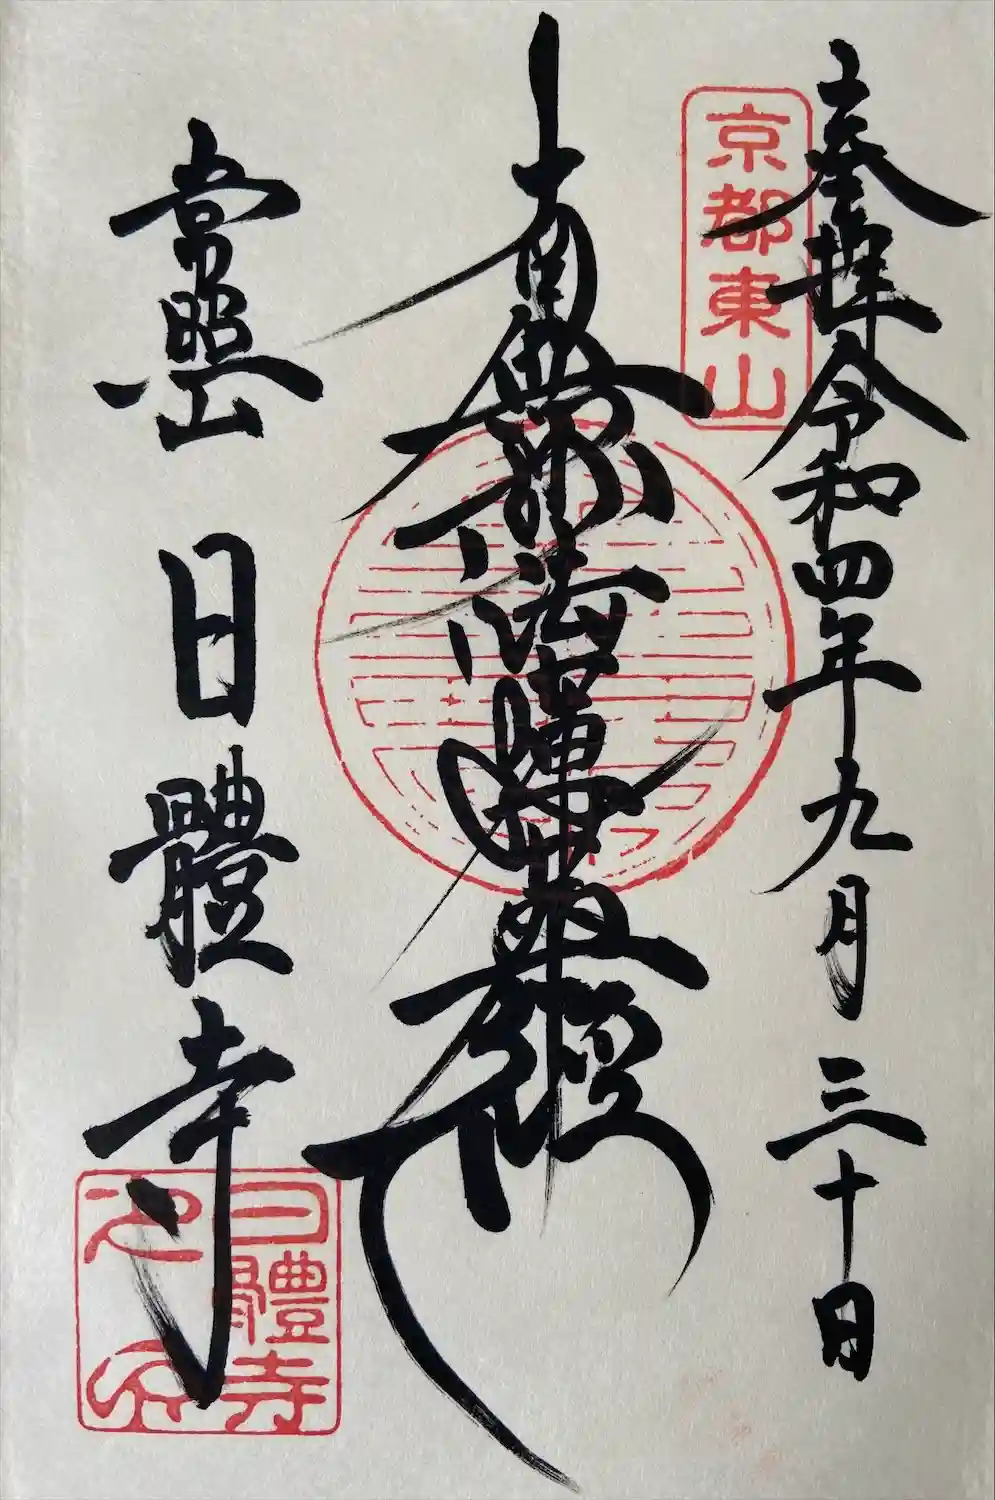 奉拝 令和四年九月三十日
京都東山
南無妙法蓮華経
常照山 日體寺
日體寺